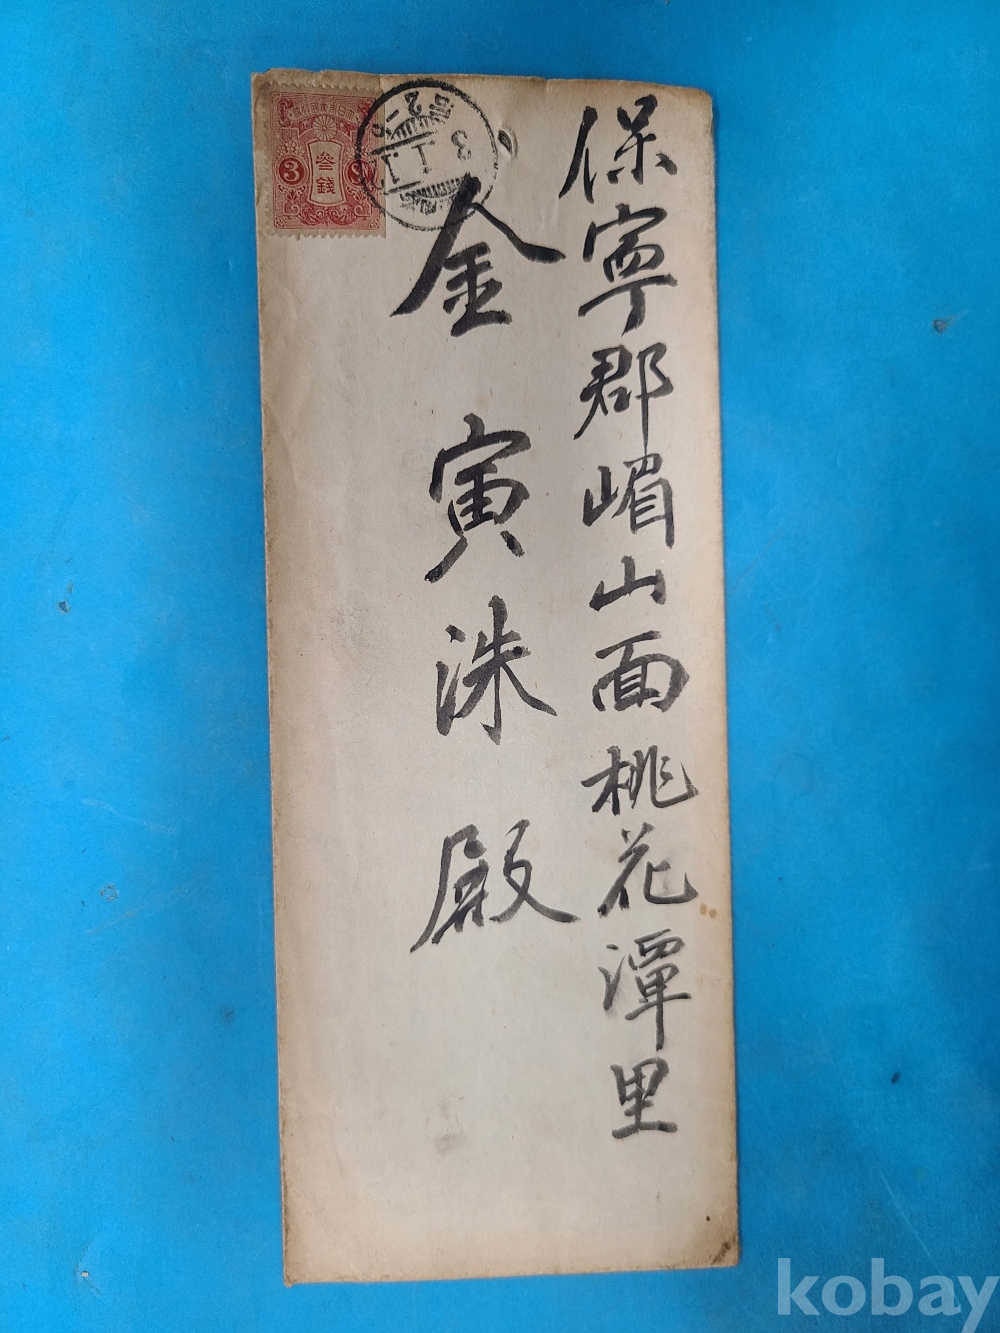 保寧郡嵋山面桃花潭里
金寅洙殿
3
參錢
kobay